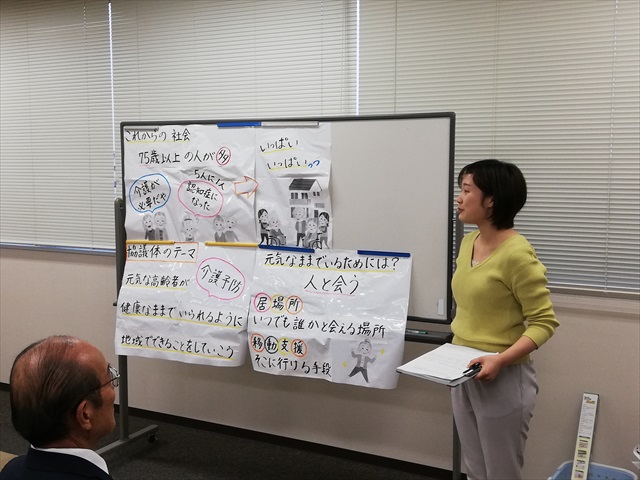 これからの 社会
75歳以上 の人が
介護が
必要だや
5人に1人
認知症に
なった
いっぱい
いっぱいっつ
協議体のテーマ
元気な高齢者が
介護予防
健康なままでいられるように
地域でできることをしていこう
元気なままでいるためには?
人と会う
居場所
いつでも誰かと会える場所
移動支援
そこに行ける手段